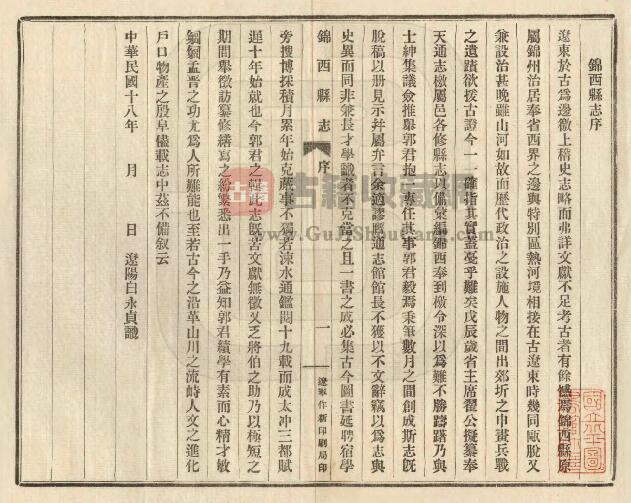 錦西縣志序
遼東於古爲邊徼上稽史志略而弗詳文獻不足考古者有餘憾焉錦西縣原
屬錦州治居奉省西界之邊與特別區熱河境相接在古遼東時幾同甌脫又
兼設治甚晚雖山河如故而歷代政治之設施人物之間出郊圻之申畫兵戰
之遺蹟欲援古證今一一確指其實蓋戞乎難矣戊辰歲省主席翟公擬纂奉
天通志檄屬邑各修縣志以備彙編錦西奉到檄令深以爲難不勝躊躇乃與
士紳集議僉推舉郭君抱一專任其事郭君毅焉秉筆數月之間創成斯志旣
脫稿以册見示幷屬弁言余適謬膺通志館館長不獲以不文辭竊以爲志與
史異而同非兼長才學識者不克當之且一書之成必集古今圖書延聘宿學
錦西縣志 序 一 遼寧作新印刷局印
旁搜博採積月累年始克蕆事不獨若涑水通鑑閱十九載而成太冲三都賦
遲十年始就也今郭君之輯此志旣苦文獻無徵又乏將伯之助乃以極短之
期間舉徵訪纂修繕寫之紛繁悉出一手乃益知郭君績學有素而心精才敏
鍘鍘孟晋之功尤爲人所難能也至若古今之沿革山川之流峙人文之進化
戶口物產之殷阜備載志中茲不備叙云
中華民國十八年 月 日 遼陽白永貞識
古籍收藏網
www.GuJiShouCang.com